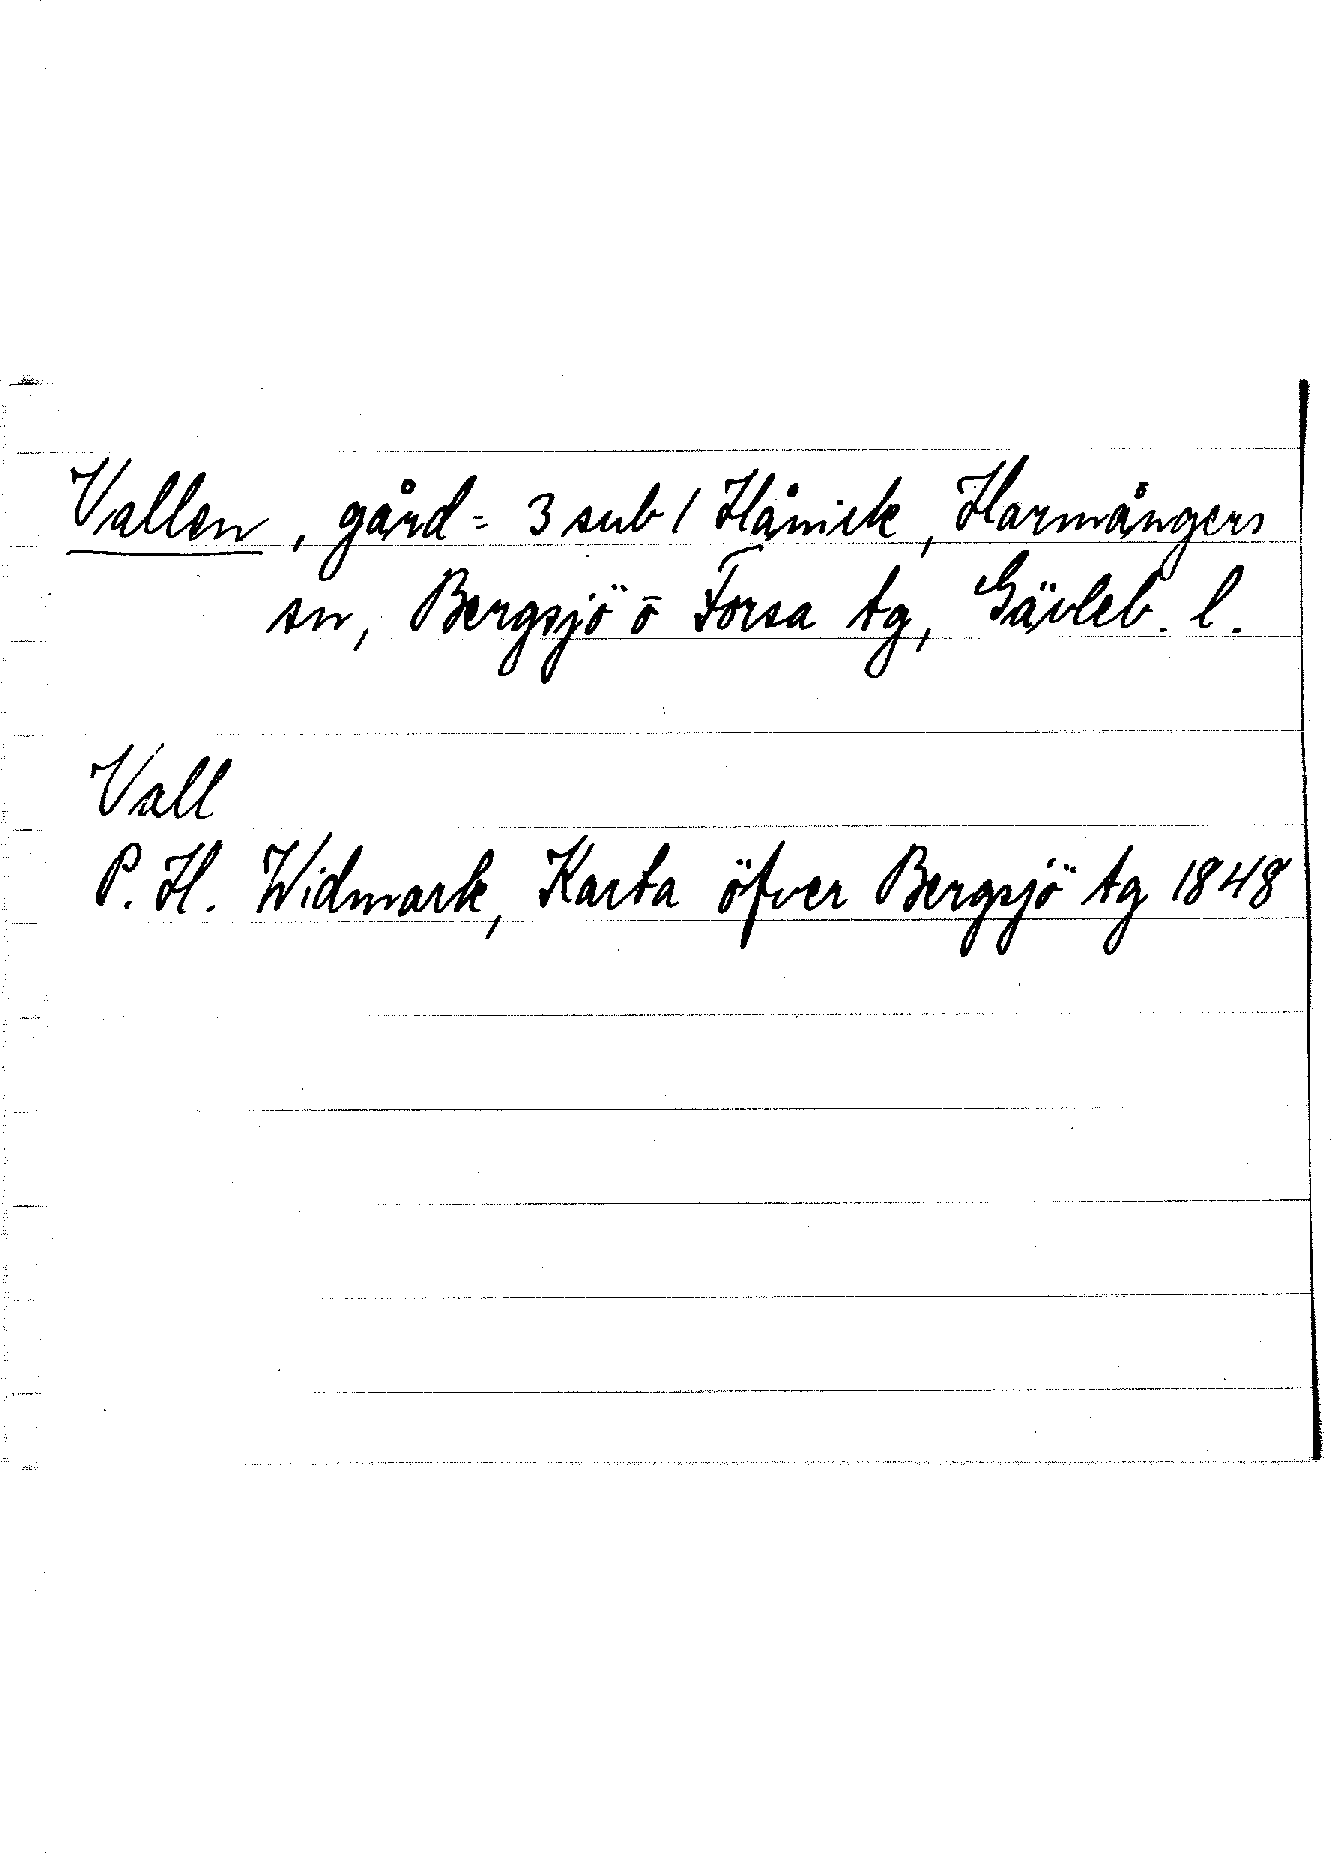 Vallen, gård = 3 sub 1 Hånick, Harmångers
sn, Bergsjö o Forsa tg, Gävleb. l.
Vall
P. H. Widmark, Karta öfver Bergsjö tg 1848